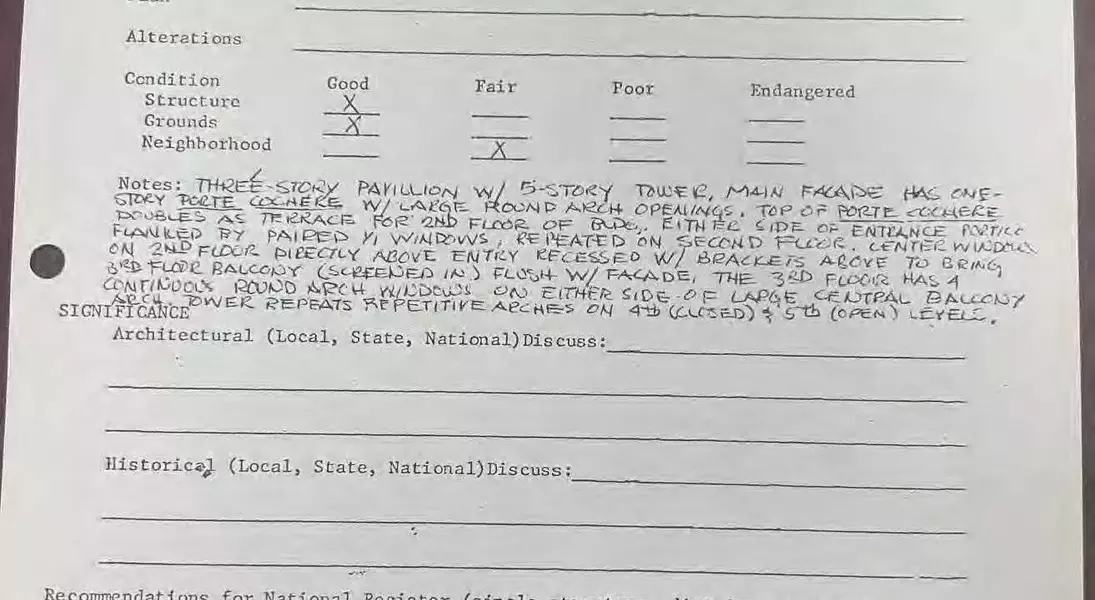 Alterations
Condition Good Fair Poor Endangered
Structure X
Grounds X
Neighborhood X
Notes: THREE-STORY PAVILLION W/ 5-STORY TOWER, MAIN FACADE HAS ONE-
STORY PORTE COCHERE W/ LARGE ROUND ARCH OPENINGS. TOP OF PORTE COCHERE
DOUBLES AS TERRACE FOR 2ND FLOOR OF BLDG. EITHER SIDE OF ENTRANCE PORTICO
FLANKED BY PAIRED WINDOWS, REPEATED ON SECOND FLOOR. CENTER WINDOWS
ON 2ND FLOOR DIRECTLY ABOVE ENTRY RECESSED W/ BRACKETS ABOVE TO BRING
3RD FLOOR BALCONY (SCREENED IN) FLUSH W/ FACADE. THE 3RD FLOOR HAS 4
CONTINUOUS ROUND ARCH WINDOWS ON EITHER SIDE OF LARGE CENTRAL BALCONY
ARCH. TOWER REPEATS REPETITIVE ARCHES ON 4th (CLOSED) & 5th (OPEN) LEVELS.
SIGNIFICANCE
Architectural (Local, State, National)Discuss:
Historical (Local, State, National)Discuss:
Recommendations for National Register